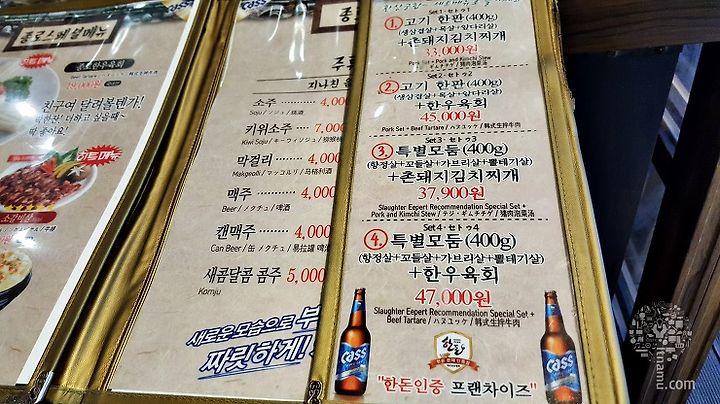 종로스페셜메뉴
종로한우육회
Beef Tartare /
친구여 달려볼텐가!
히트메뉴
소갈비살
cass
지나친
소주 ·········· 4,00
Soju / ソジュ / 烧酒
키위소주 ······ 7,000
Kiwi Soju / キーウィソジュ /
막걸리 ········ 4,000
Makgeolli / マッコルリ / 马格利酒
맥주 ·········· 4,000
Beer / メクチュ / 啤酒
캔맥주 ········ 4,000
Can Beer / 缶 メクチュ / 易拉罐 啤酒
새콤달콤 콤주 5,000
Komju
새로운 모습으로 부
짜릿하게!
Set1 · セトゥ1
1. 고기 한판 (400g)
(생삼겹살+목살+앞다리살)
+촌돼지김치찌개
33,000원
Pork Set + Pork and Kimchi Stew /
Set2 · セトゥ2
2. 고기 한판 (400g)
(생삼겹살+목살+앞다리살)
+한우육회
45,000원
Pork Set + Beef Tartare / ハヌユッケ / 韩式生拌牛肉
Set3 · セトゥ3
3. 특별모둠 (400g)
(항정살+꼬들살+가브리살+뽈테기살)
+촌돼지김치찌개
37,900원
Slaughter Eepert Recommendation Special Set +
Pork and Kimchi Stew / テジ・ギムチチゲ / 猪肉泡菜汤
Set4 · セトゥ4
4. 특별모둠 (400g)
(항정살+꼬들살+가브리살+뽈테기살)
+한우육회
47,000원
Slaughter Eepert Recommendation Special Set +
Beef Tartare / ハヌユッケ / 韩式生拌牛肉
cass
한돈
cass
"한돈인증 프랜차이즈"
tnamu.com